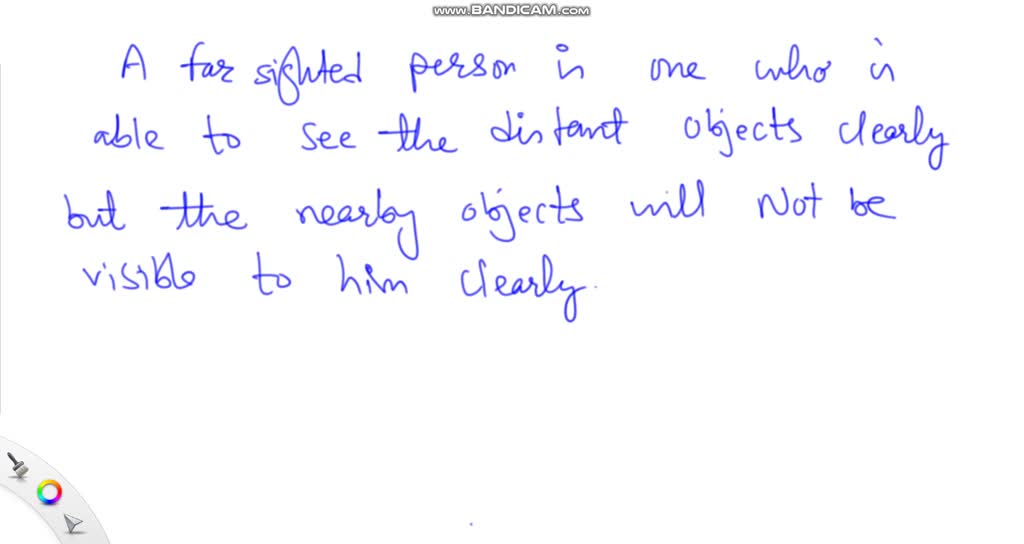 www.BANDICAM.com
A far sighted person is one who is
able to see the distant objects clearly
but the nearby objects will Not be
visible to him clearly.